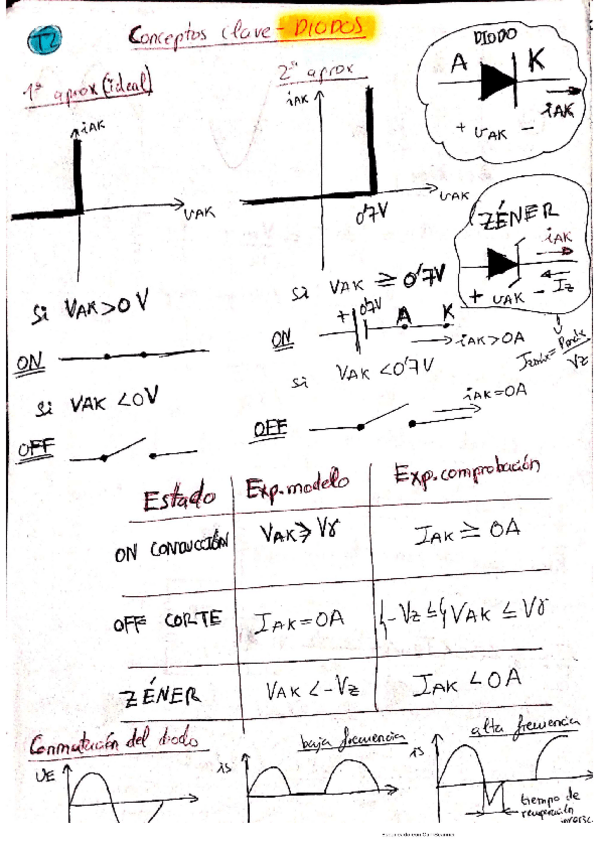 T2
Conceptos clave - DIODOS
1ª aprox (ideal)
iAK
vAK
2ª aprox
iAK
vAK
0'7V
DIODO
A K
iAK
+ vAK -
ZÉNER
iAK
Iz
+ vAK -
Izmáx = Pzmáx / Vz
Si VAK > 0V
ON
Si VAK < 0V
OFF
Si VAK ≥ 0'7V
+ 0'7V A K
ON
iAK > 0A
Si VAK < 0'7V
iAK = 0A
OFF
Estado Exp. modelo Exp. comprobación
ON CONDUCCIÓN VAK ≥ Vγ IAK ≥ 0A
OFF CORTE IAK = 0A {-Vz ≤} VAK ≤ Vγ
ZÉNER VAK < -Vz IAK < 0A
Conmutación del diodo
baja frecuencia
alta frecuencia
vE
is
is
tiempo de
recuperación